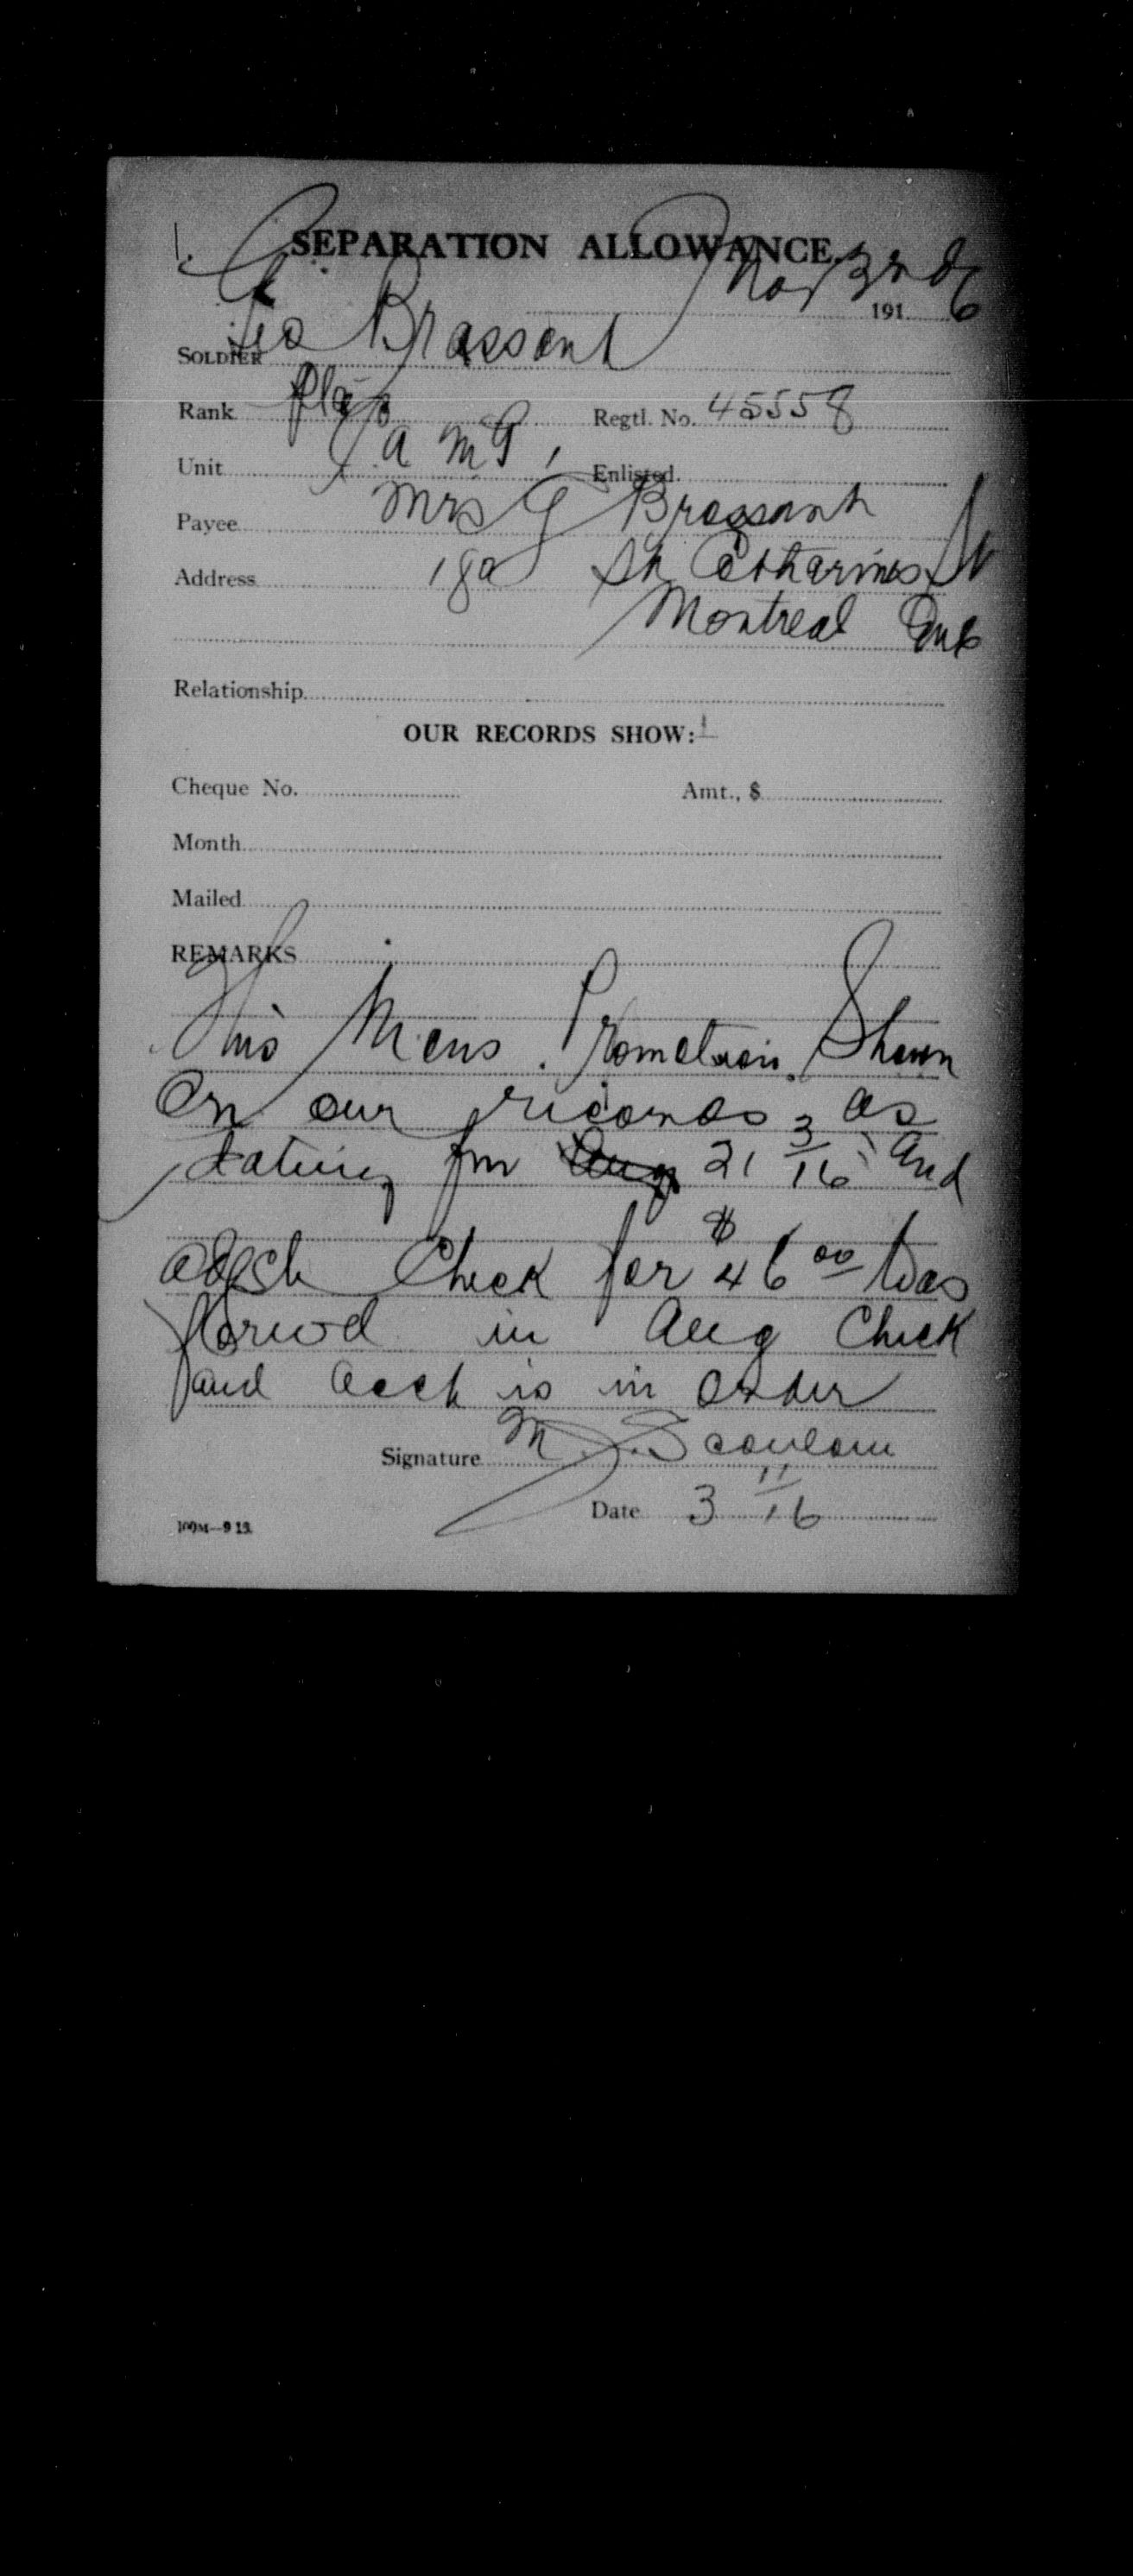 SEPARATION ALLOWANCE.
Nov 3rd 1916
SOLDIER Geo Brassant
Rank
Regtl. No. 45558
Unit
Enlisted
Payee Mrs G Brassant
Address 180 St Catharines St
Montreal Que
Relationship
OUR RECORDS SHOW:
Cheque No.
Amt., $
Month
Mailed
REMARKS
This Mens Promotion Shown
On our records as
dating fm 21 3/16 and
Check for $46 00 was
in Aug Check
and acct is in order
Signature M. J.
Date 3 11/16
100M—9 15.